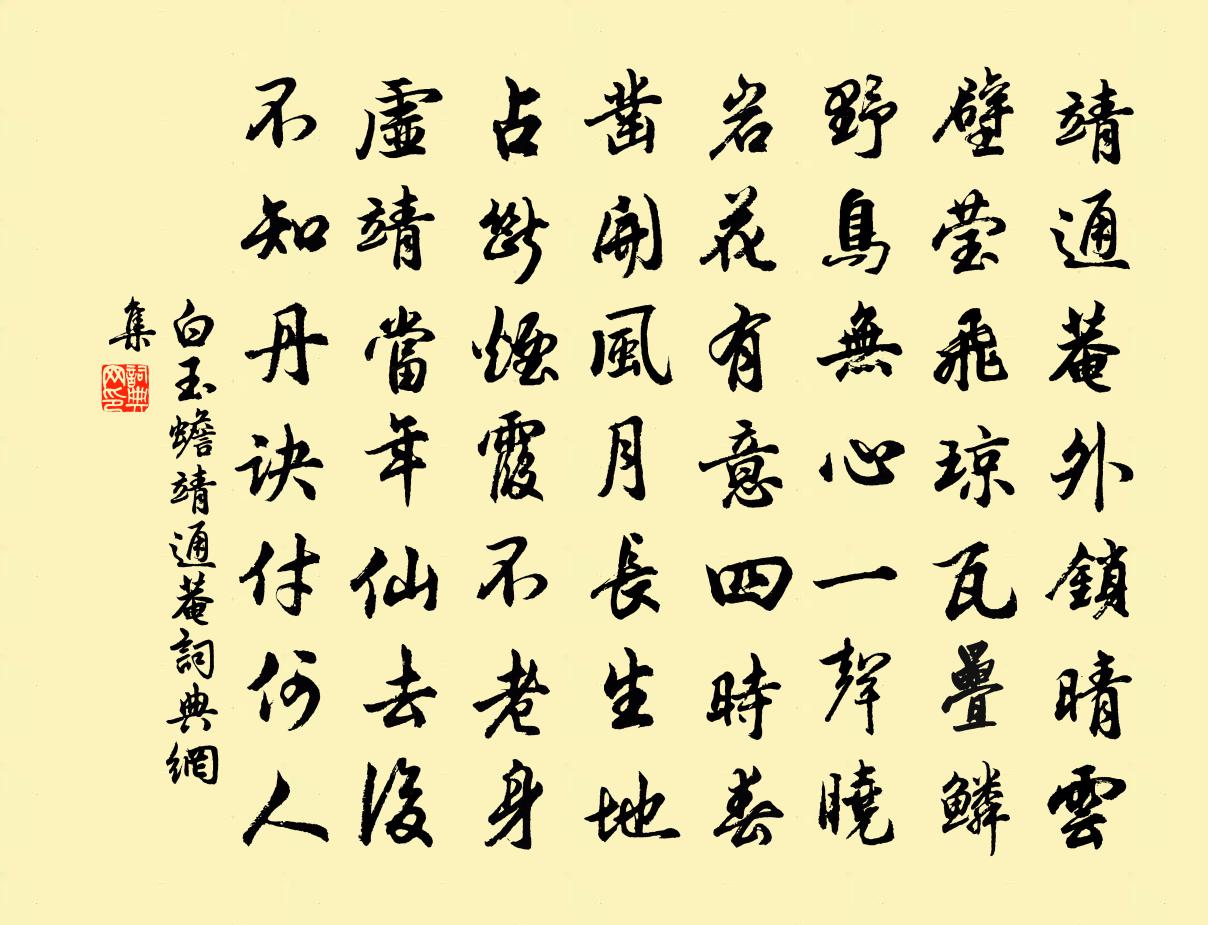 靖通菴外鎖晴雲
壁瑩飛琼瓦疊鱗
野鳥無心一聲曉
岩花有意四時春
凿開風月長生地
占斷煙霞不老身
虛靖當年仙去後
不知丹訣付何人
白玉蟾靖通菴詞典網
集
詞典
网印